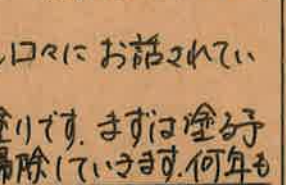 口々にお話されてい
塗りです。まずは塗る予
掃除していきます。何年も